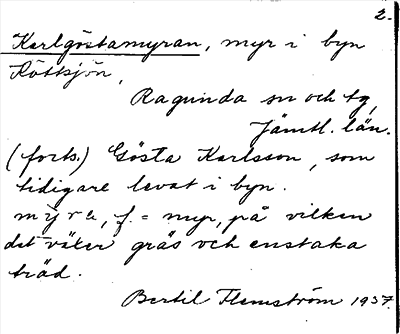 2.
Karlgöstamyran, myr i byn
Köttsjön,
Ragunda sn och tg,
Jämtl. län.
(forts.) Gösta Karlsson, som
tidigare levat i byn.
myra, f. = myr, på vilken
det växer gräs och enstaka
träd.
Bertil Flemström 1957.